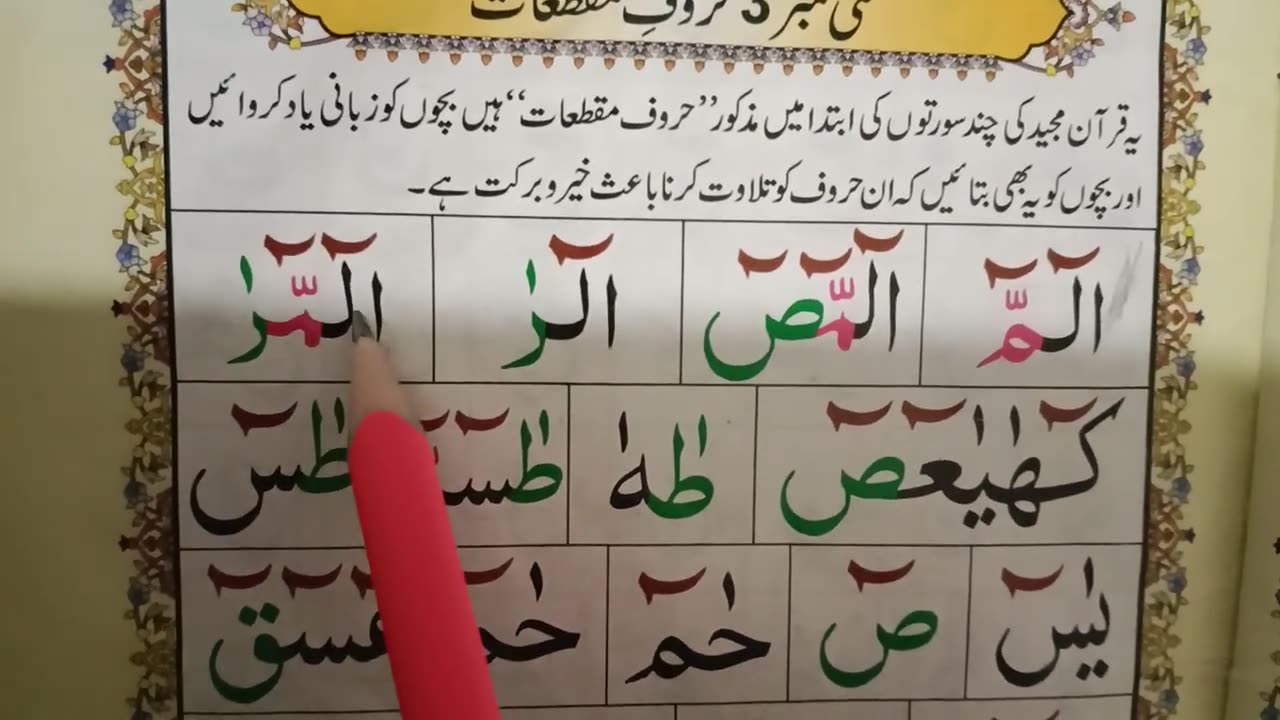 نمبر 3 حروفِ مقطعات
یہ قرآن مجید کی چند سورتوں کی ابتدا میں مذکور ’’حروف مقطعات‘‘ ہیں بچوں کو زبانی یاد کروائیں
اور بچوں کو یہ بھی بتائیں کہ ان حروف کو تلاوت کرنا باعث خیر و برکت ہے۔
الٓمّٓ الٓمّٓصٓ الٓرٰ الٓمّٓرٰ
كٓهٰيٰعٓصٓ طٰهٰ طٰسٓ
يٰسٓ صٓ حٰمٓ حٰمٓ عٓسٓقٓ